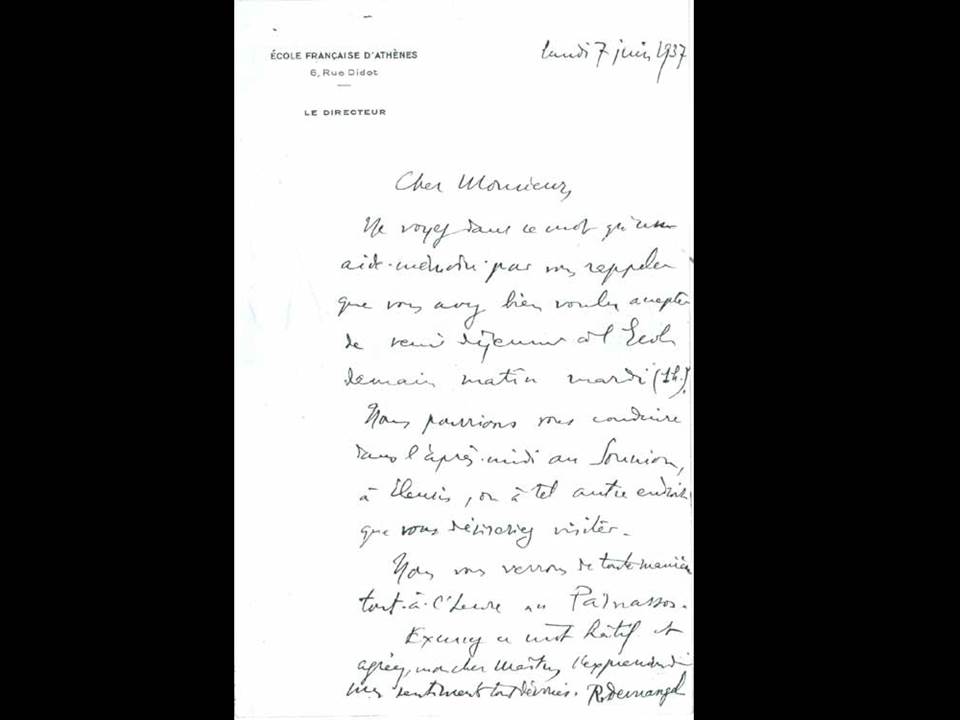 ÉCOLE FRANÇAISE D'ATHÈNES
6, Rue Didot
LE DIRECTEUR
lundi 7 juin 1937
Cher Monsieur,
Ne voyez dans ce mot qu'un
aide-mémoire pour vous rappeler
que vous avez bien voulu accepter
de venir déjeuner à l'Ecole
demain matin mardi (1h.).
Nous pourrions vous conduire
dans l'après-midi au Sounion,
à Eleusis, ou à tel autre endroit
que vous désireriez visiter.
Nous vous verrons de toute manière
tout-à-l'heure au Parnassos.
Excusez ce mot hâtif et
agréez, mon cher Maître, l'expression de
mes sentiments tout dévoués. R. Demangel